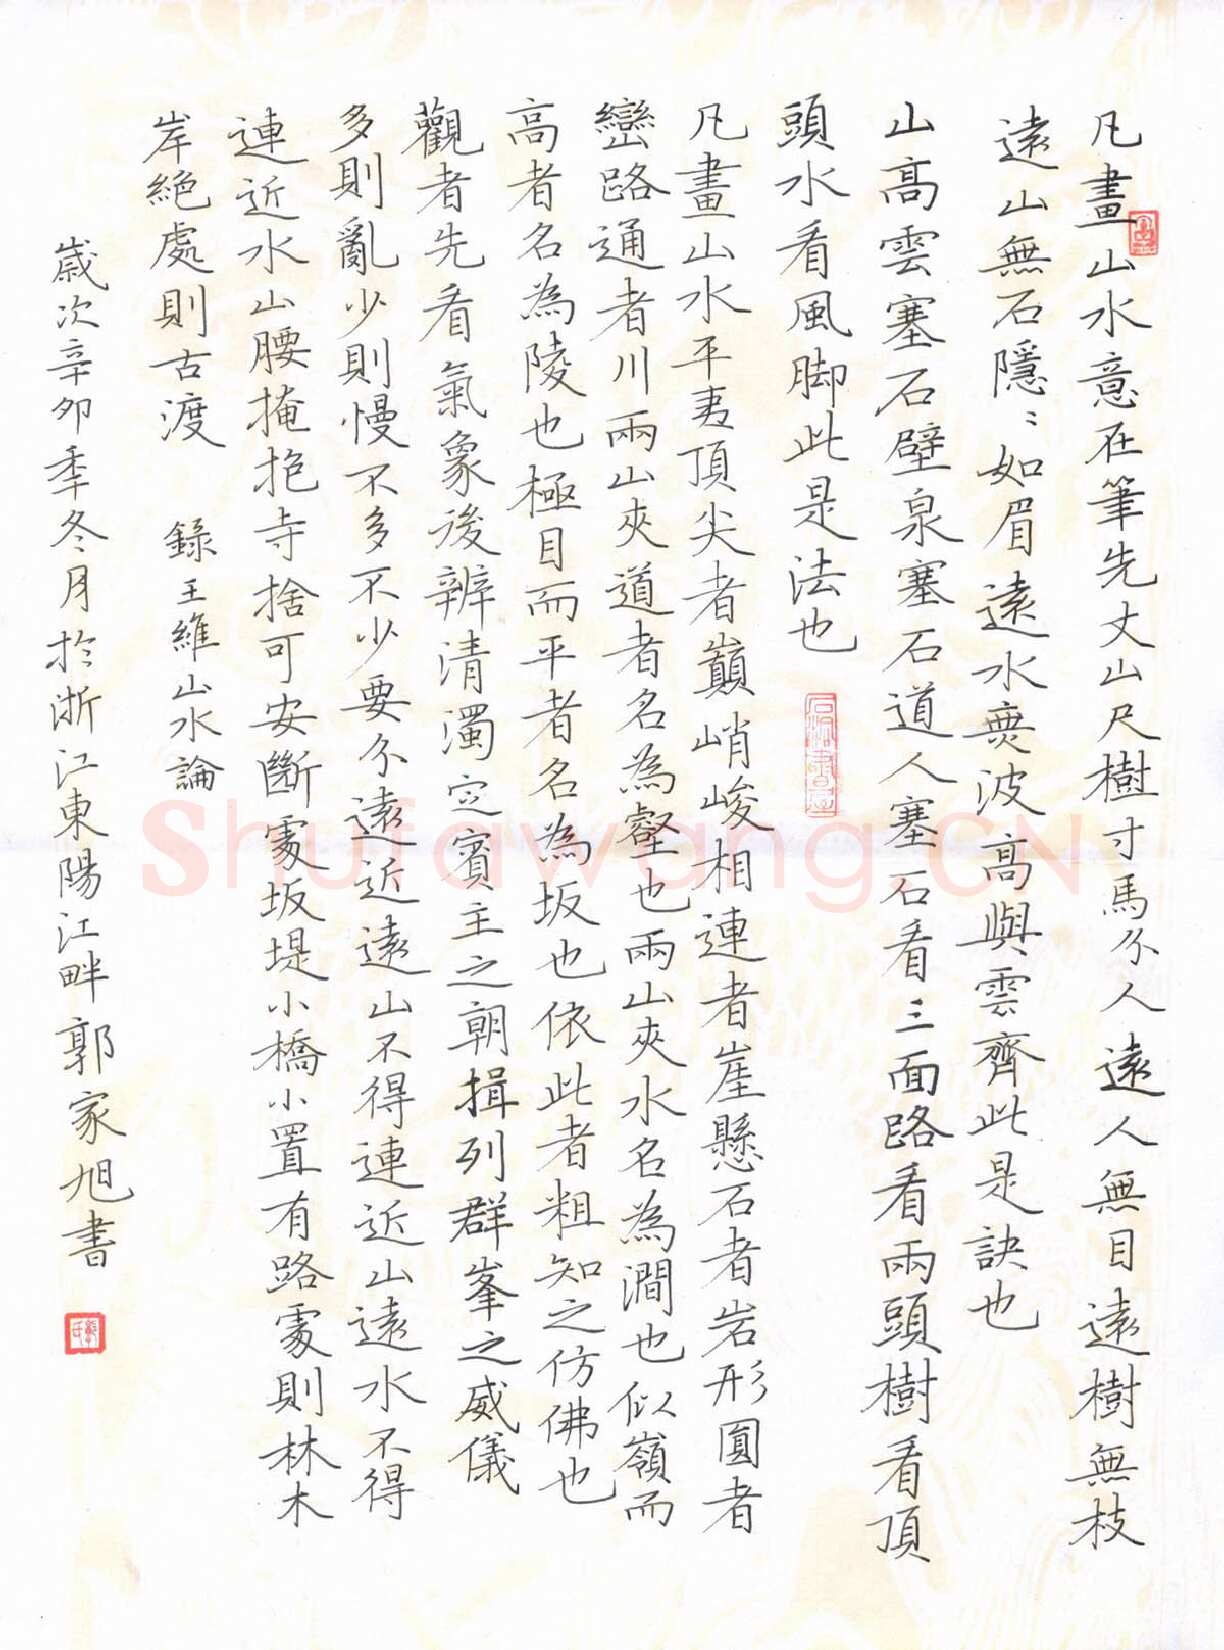 凡畫山水意在筆先丈山尺樹寸馬分人遠人無目遠樹無枝
遠山無石隱隱如眉遠水無波高與雲齊此是訣也
山高雲塞石壁泉塞石道人塞石看三面路看兩頭樹看頂
頭水看風脚此是法也
凡畫山水平夷頂尖者巔峭峻相連者崖懸石者岩形圓者
巒路通者川兩山夾道者名為壑也兩山夾水名為澗也似嶺而
高者名為陵也極目而平者名為坂也依此者粗知之仿佛也
觀者先看氣象後辨清濁定賓主之朝揖列群峯之威儀
多則亂少則慢不多不少要分遠近遠山不得連近山遠水不得
連近水山腰掩抱寺捨可安斷處坂堤小橋小置有路處則林木
岸絕處則古渡 錄王維山水論
歲次辛卯季冬月於浙江東陽江畔郭家旭書
Shufawang.CN